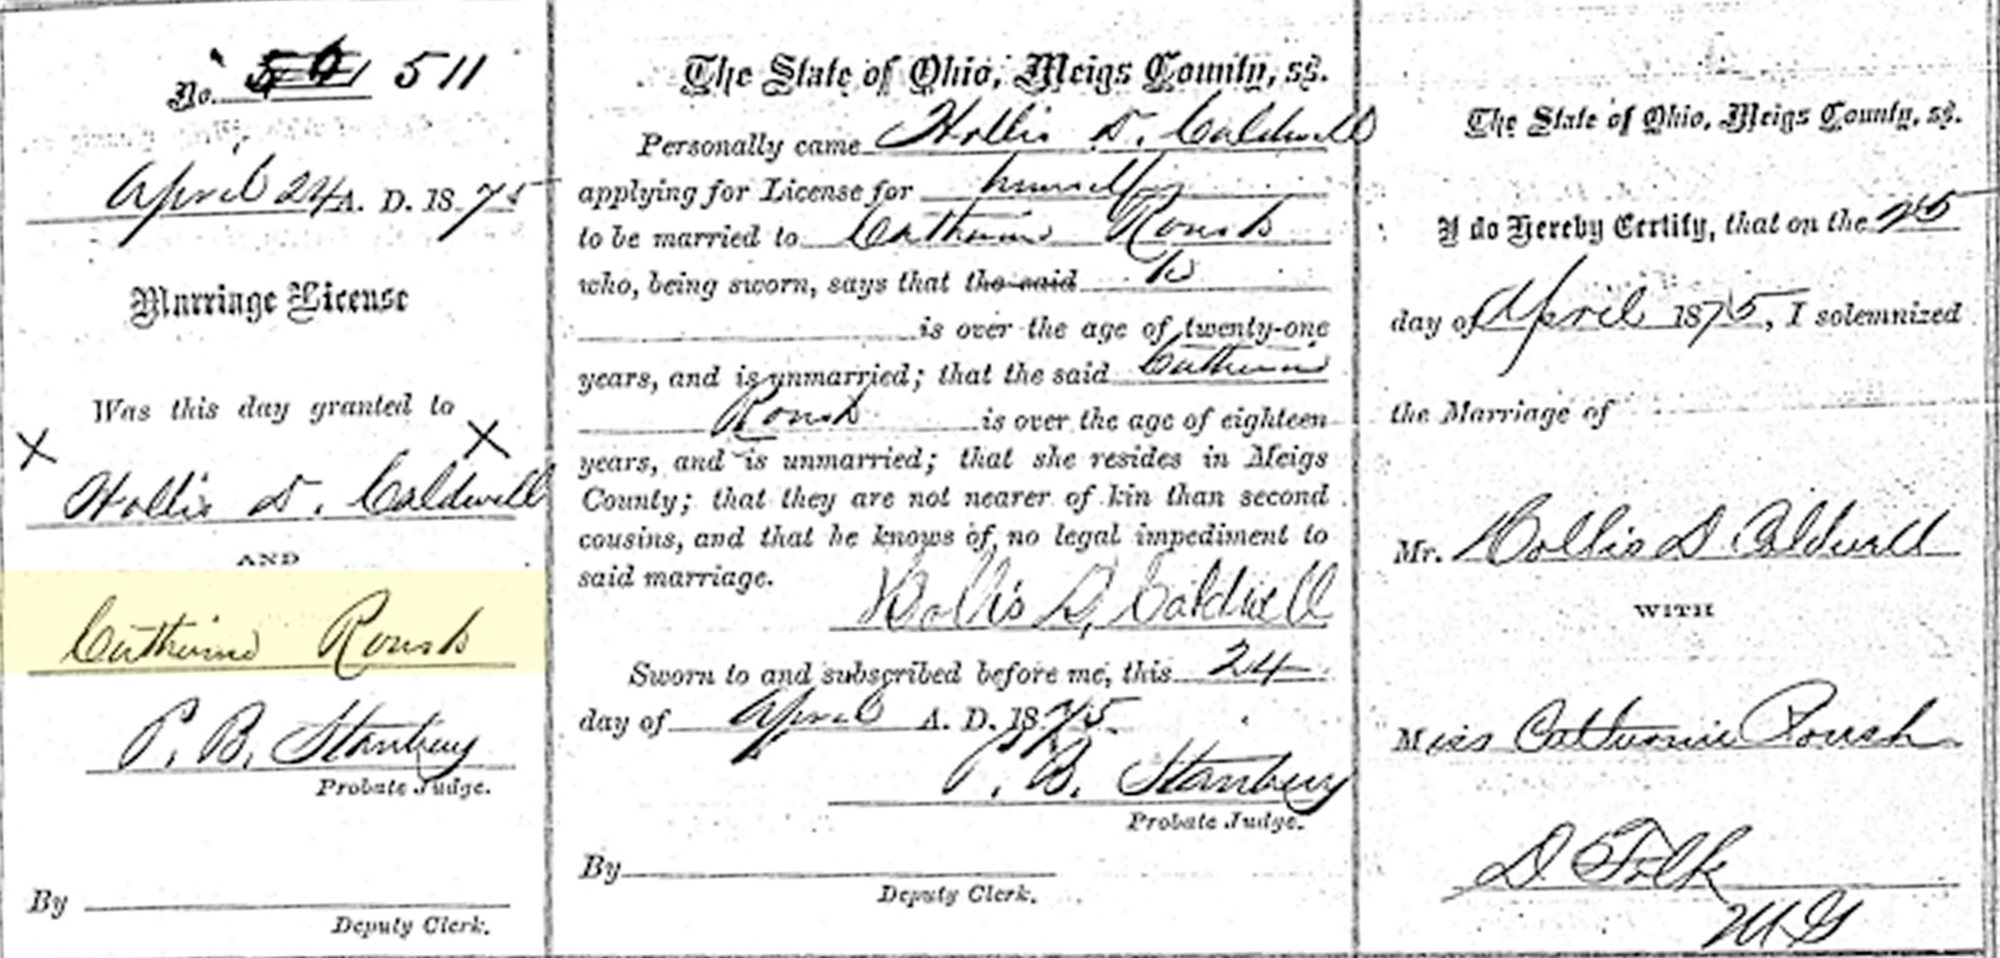 No. 511
April 24 A. D. 1875
Marriage License
Was this day granted to
X X
Hollis D. Caldwell
AND
Catherine Roush
P. B. Stanbery
Probate Judge.
By
Deputy Clerk.
The State of Ohio, Meigs County, ss.
Personally came Hollis D. Caldwell
applying for License for himself
to be married to Catherine Roush
who, being sworn, says that the said he
is over the age of twenty-one
years, and is unmarried; that the said Catherine
Roush is over the age of eighteen
years, and is unmarried; that she resides in Meigs
County; that they are not nearer of kin than second
cousins, and that he knows of no legal impediment to
said marriage.
Hollis D. Caldwell
Sworn to and subscribed before me, this 24
day of April A. D. 1875
P. B. Stanbery
Probate Judge.
By
Deputy Clerk.
The State of Ohio, Meigs County, ss.
I do Hereby Certify, that on the 25
day of April 1875, I solemnized
the Marriage of
Mr. Hollis D Caldwell
WITH
Miss Catherine Roush
D Folk
M G